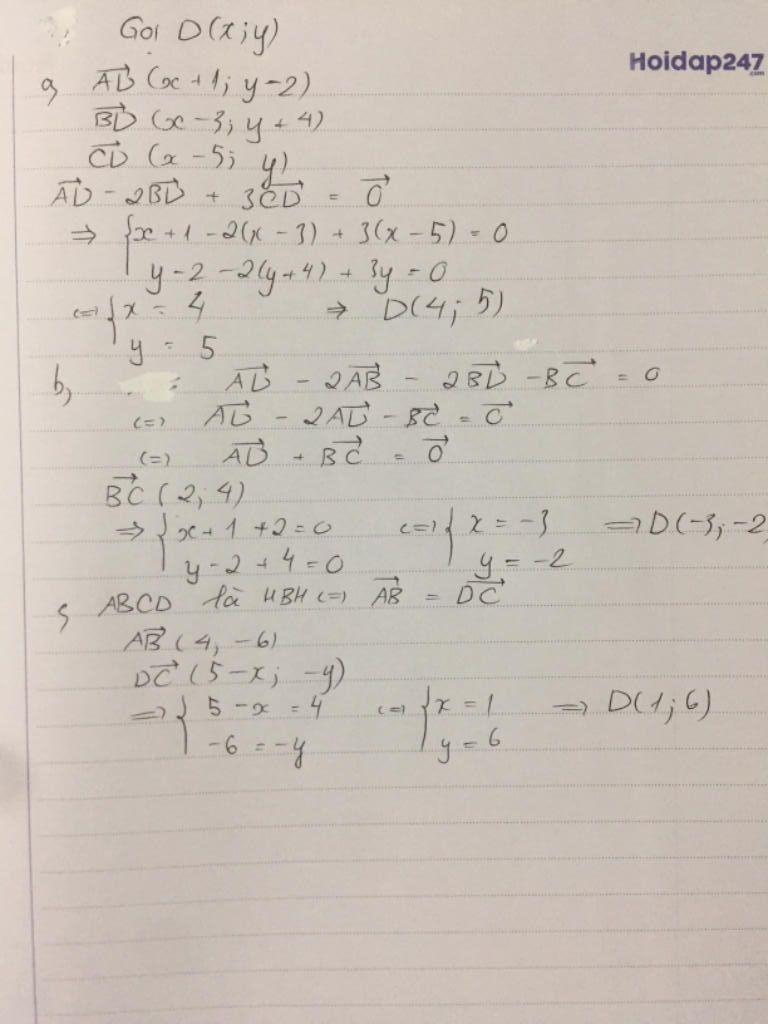 Gọi D(x;y)
Hoidap247
.com
a, AD→ (x+1; y-2)
BD→ (x-3; y+4)
CD→ (x-5; y)
AD→ - 2BD→ + 3CD→ = 0→
⇒ { x+1-2(x-3)+3(x-5)=0
y-2-2(y+4)+3y=0
(=) { x = 4 ⇒ D(4; 5)
y = 5
b, AD→ - 2AB→ - 2BD→ - BC→ = 0
(=) AD→ - 2AD→ - BC→ = 0→
(=) AD→ + BC→ = 0→
BC→ (2; 4)
⇒ { x+1+2=0 (=) { x = -3 ⇒ D(-3; -2)
y-2+4=0 y = -2
c, ABCD là HBH (=) AB→ = DC→
AB→ (4, -6)
DC→ (5-x; -y)
⇒ { 5-x = 4 (=) { x = 1 ⇒ D(1; 6)
-6 = -y y = 6